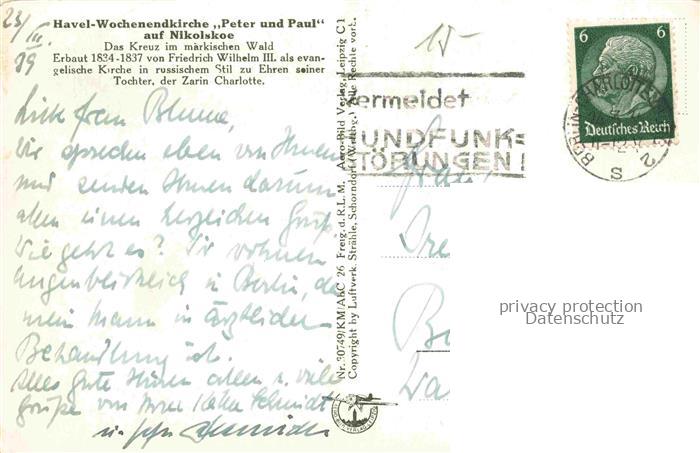 Havel-Wochenendkirche „Peter und Paul"
auf Nikolskoe
Das Kreuz im märkischen Wald
Erbaut 1834-1837 von Friedrich Wilhelm III. als evan-
gelische Kirche in russischem Stil zu Ehren seiner
Tochter, der Zarin Charlotte.
23/III.
39
Liebe Frau Blume,
wir sprechen eben von Ihnen
und senden Ihnen darum
allen einen herzlichen Gruß
Wie geht es? Wir wohnen
augenblicklich in Berlin, da
mein Mann in ärztlicher
Behandlung ist.
Alles gute Ihnen allen u. viele
Grüße von Ihrer Käthe Schmidt
Nr. 30749/KM/ABC 26 Freig. d. R. L. M. Aero-Bild Verlag, Leipzig C 1
Copyright by Luftverk. Strähle, Schorndorf (Württbg.) Alle Rechte vorb.
15-
vermeidet
RUNDFUNK=
STÖRUNGEN!
6 6
Deutsches Reich
BERLIN-CHARLOTTENBURG 2
S
Frau
privacy protection
Datenschutz